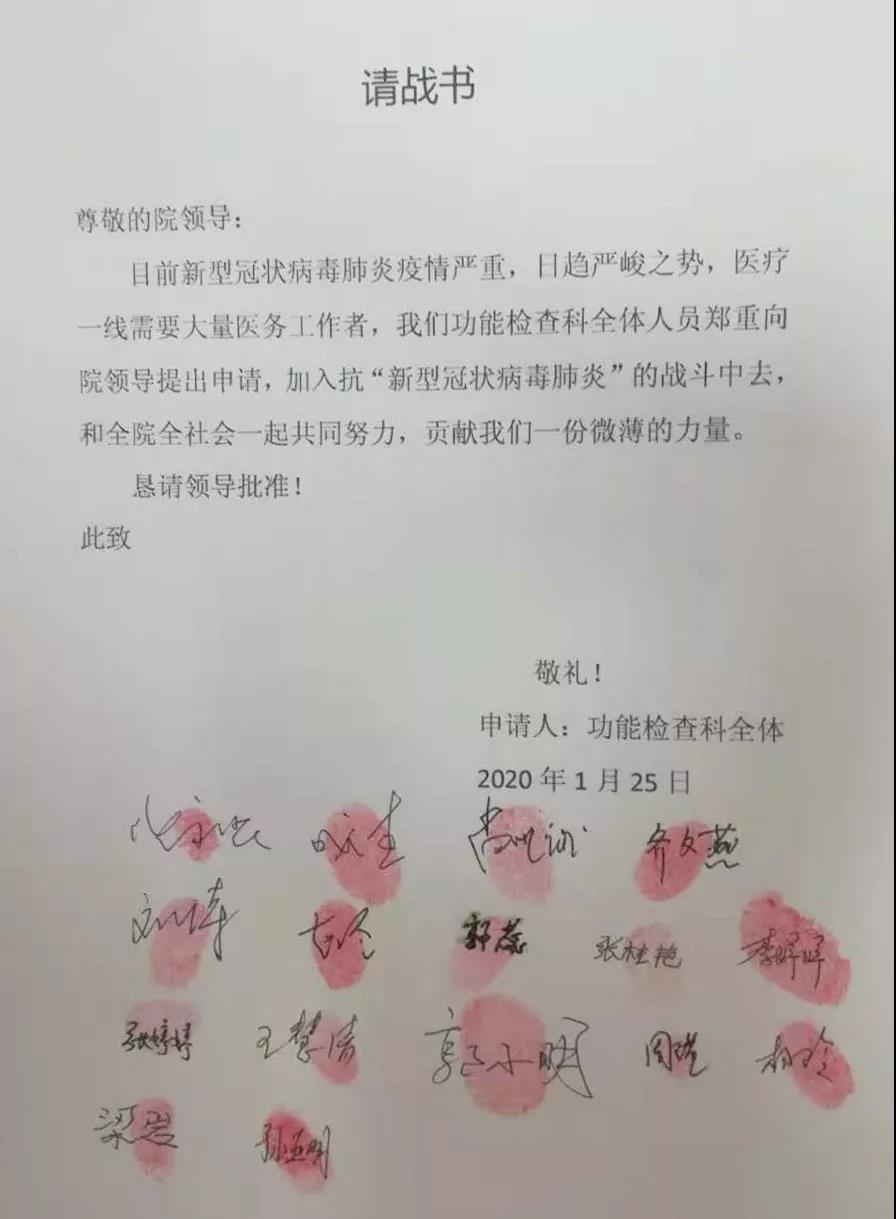 请战书
尊敬的院领导：
目前新型冠状病毒肺炎疫情严重，日趋严峻之势，医疗
一线需要大量医务工作者，我们功能检查科全体人员郑重向
院领导提出申请，加入抗“新型冠状病毒肺炎”的战斗中去，
和全院全社会一起共同努力，贡献我们一份微薄的力量。
恳请领导批准！
此致
敬礼！
申请人：功能检查科全体
2020 年 1 月 25 日
齐文燕
郭蕊 张桂艳 李婷婷
张婷婷 王慧清 郭小明
梁岩